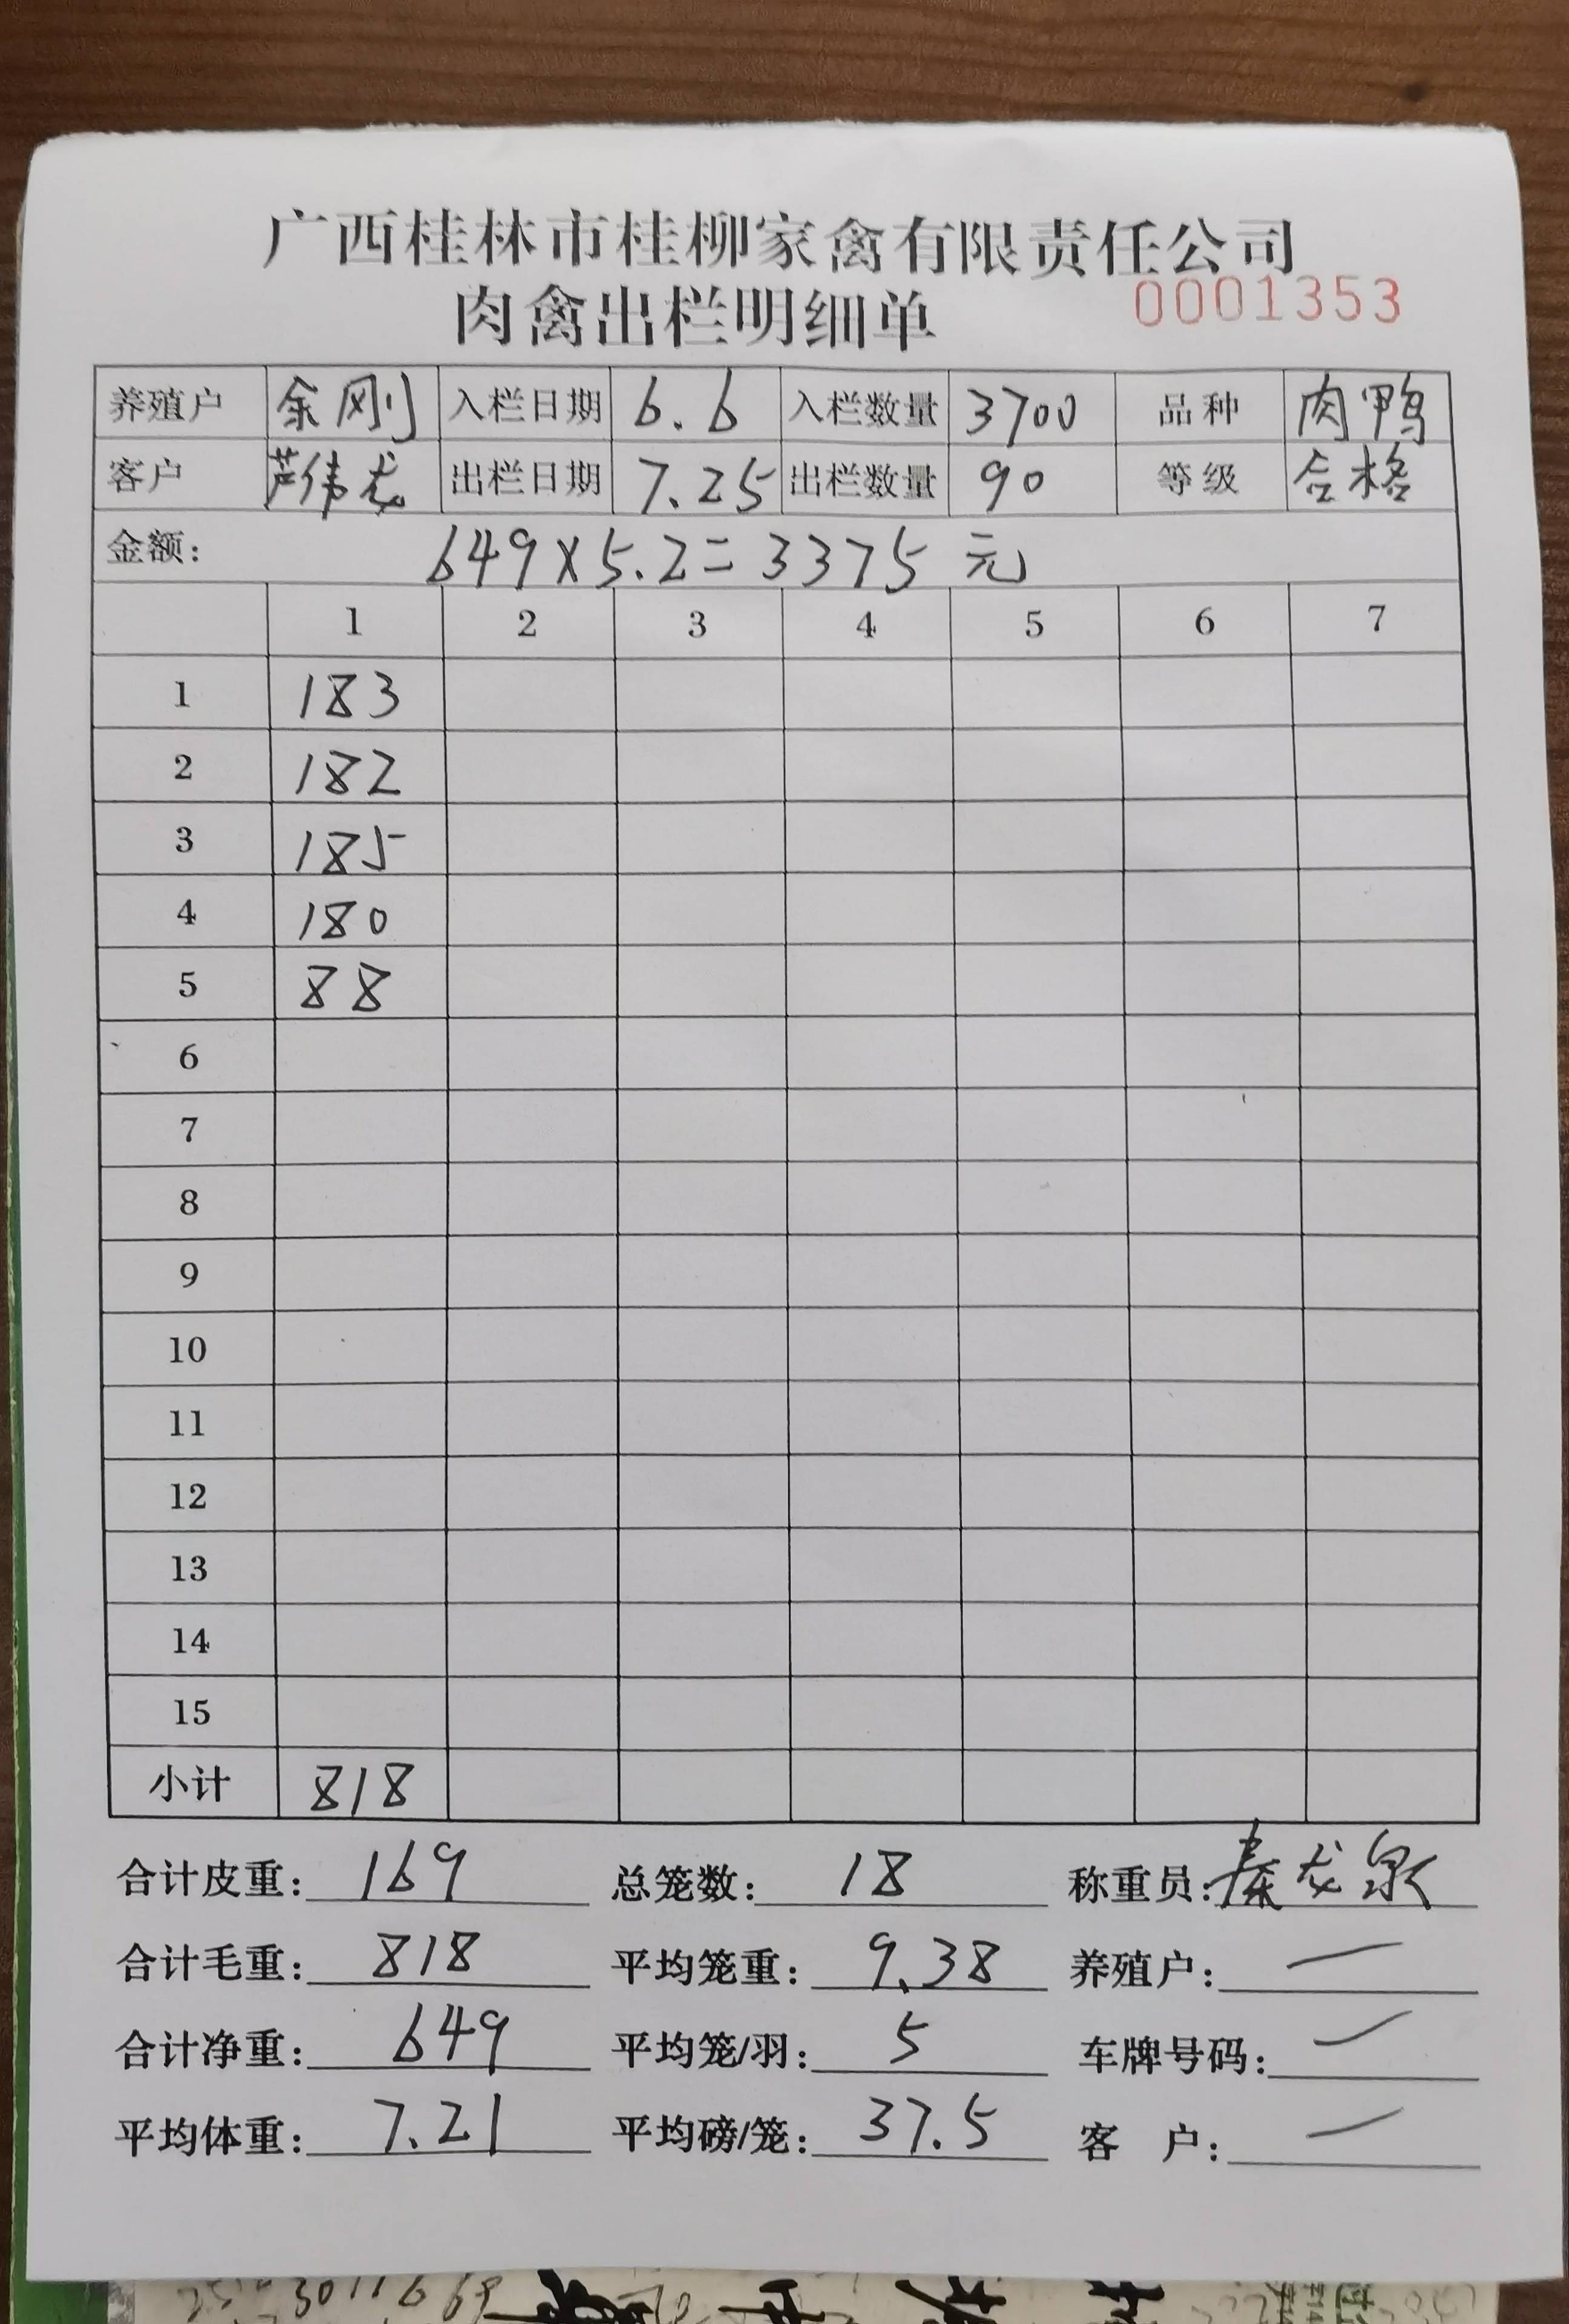 广西桂林市桂柳家禽有限责任公司
肉禽出栏明细单 0001353
养殖户 余刚 入栏日期 6.6 入栏数量 3700 品种 肉鸭
客户 芦伟龙 出栏日期 7.25 出栏数量 90 等级 合格
金额: 649×5.2=3375 元
1 2 3 4 5 6 7
1 183
2 182
3 185
4 180
5 88
6
7
8
9
10
11
12
13
14
15
小计 818
合计皮重: 169 总笼数: 18 称重员: 秦龙泉
合计毛重: 818 平均笼重: 9.38 养殖户: —
合计净重: 649 平均笼/羽: 5 车牌号码: —
平均体重: 7.21 平均磅/笼: 37.5 客 户: —